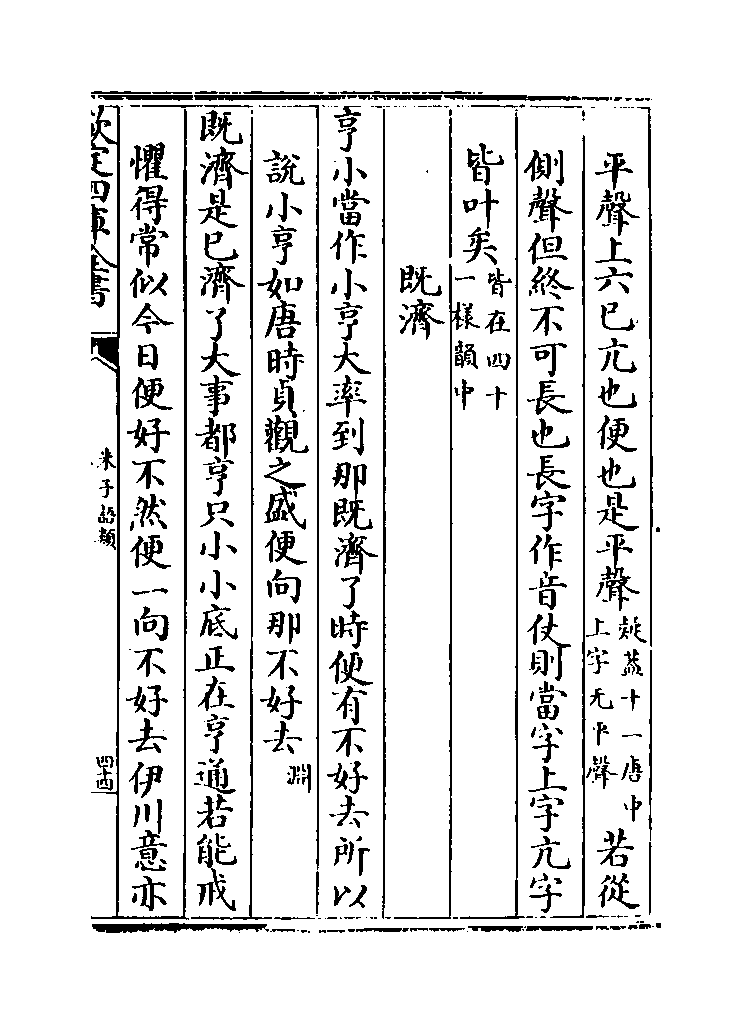 平聲上六巳亢也便也是平聲疑葢十一唐中上字无平聲若從
側聲但終不可長也長字作音仗則當字上字亢字
皆叶矣皆在四十一樣韻中
既濟
亨小當作小亨大率到那既濟了時便有不好去所以
說小亨如唐時貞觀之盛便向那不好去淵
既濟是已濟了大事都亨只小小底正在亨通若能戒
懼得常似今日便好不然便一向不好去伊川意亦
欽定四庫全書
朱子語類
四十四